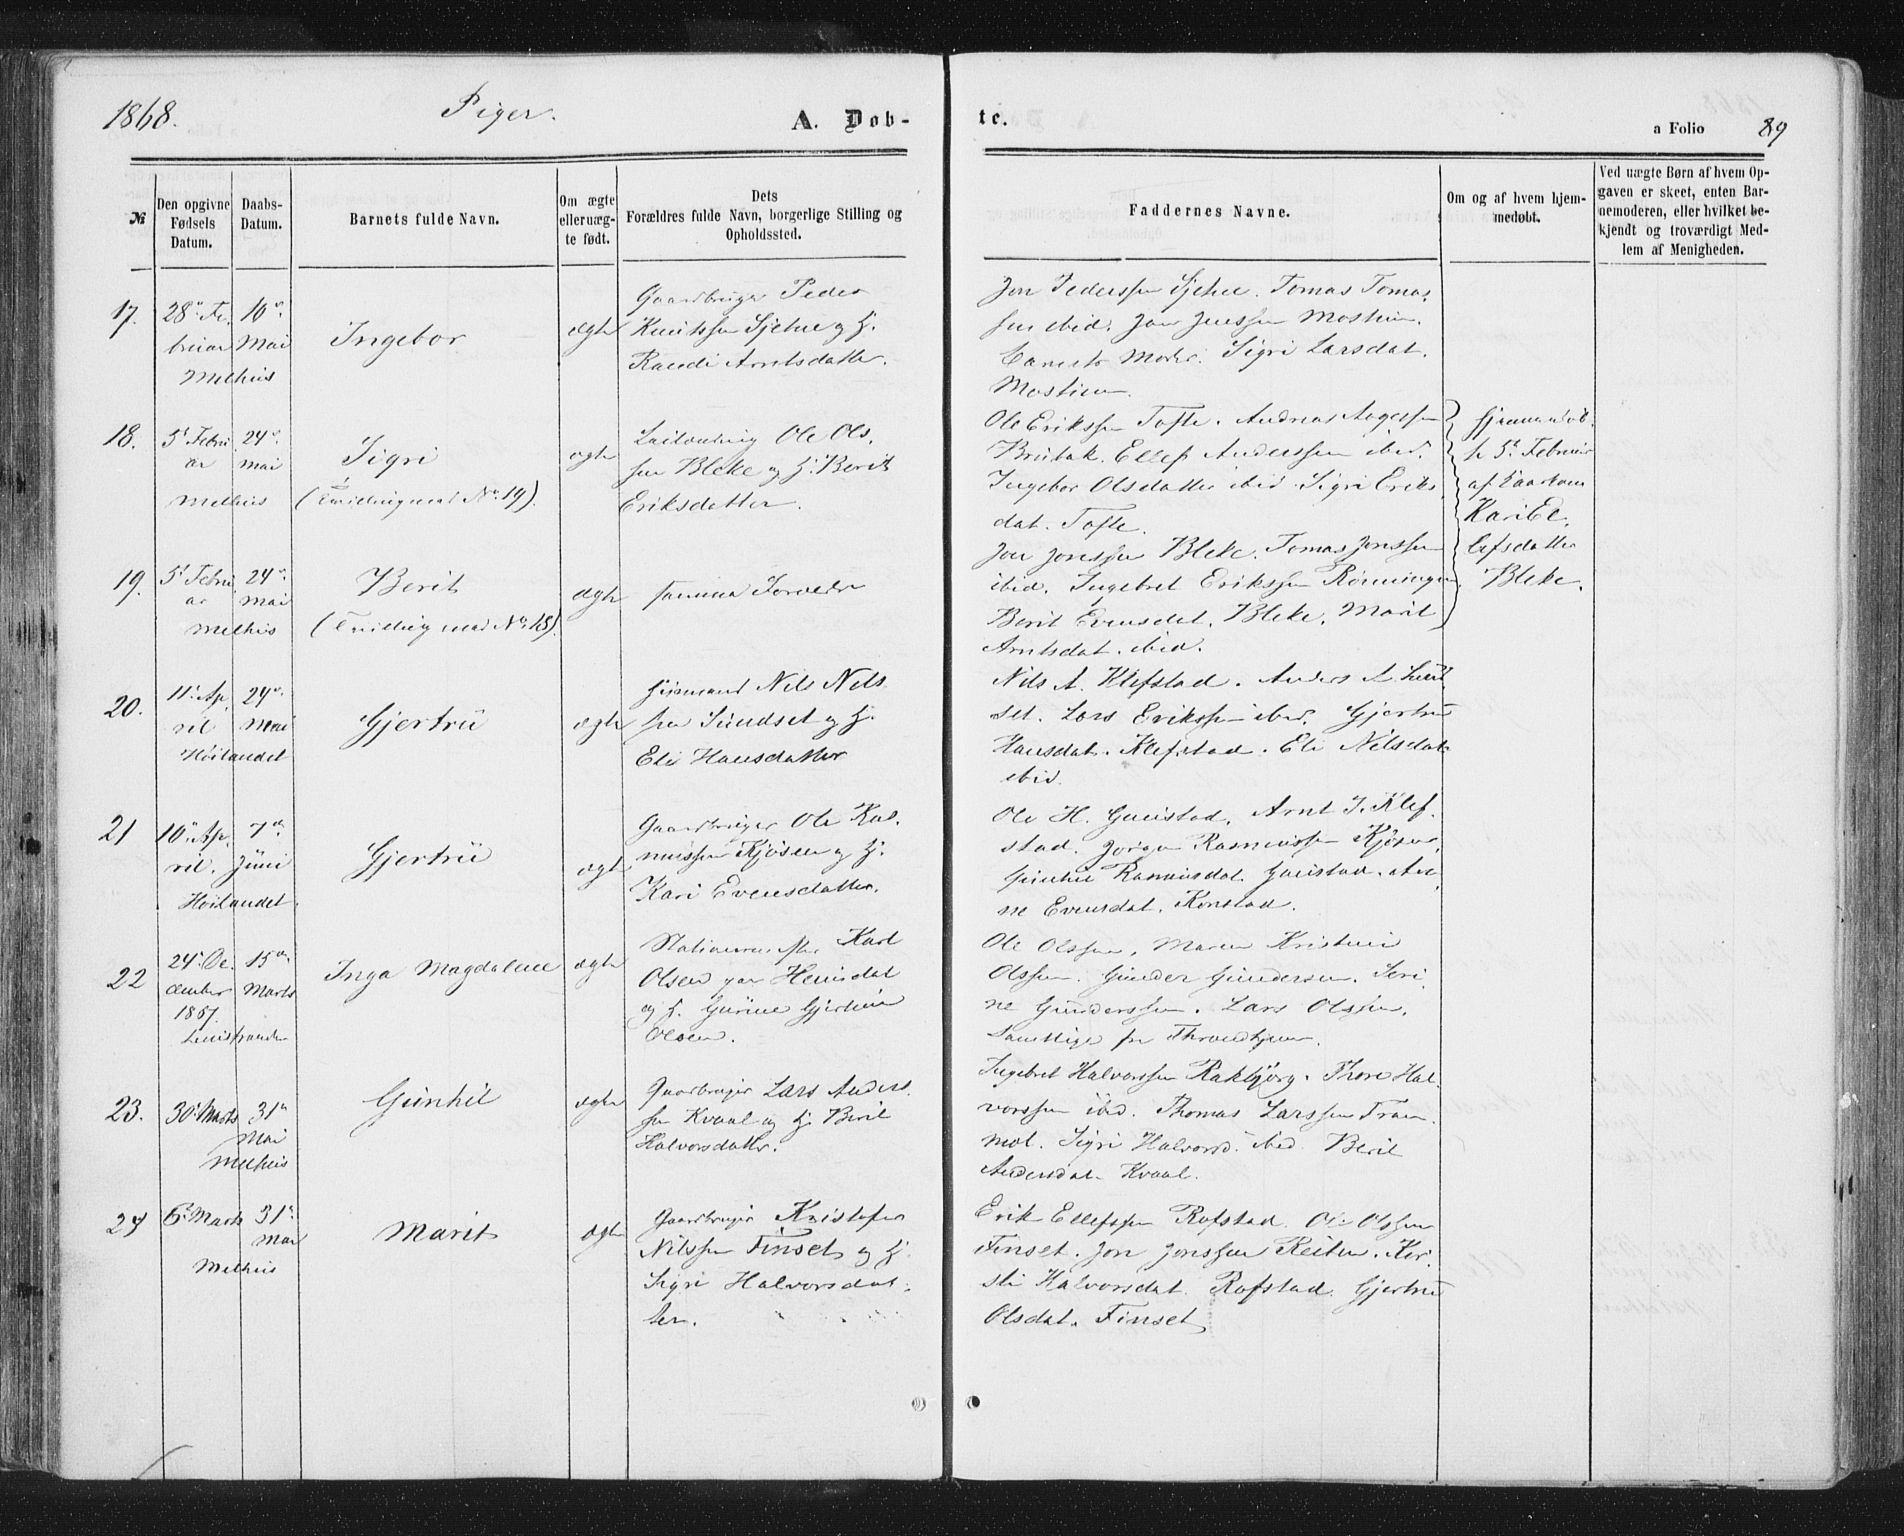 1868. Piger. A. Døb-
te. a Folio 89
№
Den opgivne Fødsels Datum.
Daabs-Datum.
Barnets fulde Navn.
Om ægte eller uæg-te født.
Dets Forældres fulde Navn, borgerlige Stilling og Opholdssted.
Faddernes Navne.
Om og af hvem hjem-medøbt.
Ved uægte Børn af hvem Op-
gaven er skeet, enten Bar-
nemoderen, eller hvilket be-
kjendt og troværdigt Med-
lem af Menigheden.
17. 28. Fe-
bruar
10.
Mai
Melhus
Ingebor
ægte
Gaardbruger Peder
Knutssen og H.
Randi Arntsdatter.
Jon Pederssen Tomas Tomas-
sen ibid. Jon Jenssen
Barnets Moder. Sigri Larsdat.
18. 5. Febru
ar
24.
Mai
Melhus
Sigri
(Tvilling med No. 19).
ægte
Ole Ols-
sen Bleke og H. Berit
Eriksdatter.
Ole Erikssen Tofte. Andreas Aagessen
Ellef Anderssen ibid.
Ingebor Olsdatter ibid. Sigri Eriks
dat. Tofte.
Hjemmedøb-
t 5. Februar
af
Kari El-
lefsdatter
Bleke.
19. 5. Febru
ar
24.
Mai
Melhus
Berit
(Tvilling med No. 18).
ægte
samme Forældre
Jon Jonssen Bleke. Tomas Jonssen
ibid. Ingebret Erikssen Rønningen
Berit Evensdat. Bleke. Marit
Arntsdat. ibid.
20. 11. Ap-
ril
24.
Mai
Høilandet
Gjertru
ægte
Husmand Nils Nils
sen Sundset og H.
Eli Hansdatter
Nils A. Klefstad. Anders A. Sund
set. Lars Erikssen ibid. Gjertru
Hansdat. Klefstad. Eli Nilsdat.
ibid.
21 10. Ap-
ril.
7de
Juni
Høilandet.
Gjertru
ægte
Gaardbruger Ole Ras-
mussen Kjøsen og H.
Kari Evensdatter.
Ole H. Gunstad. Arnt J. Klef-
stad. Jørgen Rasmussen Kjøsen.
Rasmusdat. Gunstad.
ne Evensdat. Konstad.
22 24. De-
cember
1867.
15de
Marts
Inga Magdalene
ægte
Karl
Olsen paa Heimdal
og H. Gurine
Olsen.
Ole Olssen. Maren Kristine
Olssen. Gunder Gundersen. Seri-
ne Gunderssen. Lars Olssen.
Samtlige fra Throndhjem.
23. 30. Marts
31.
Mai
Melhus
Gunhil
ægte
Gaardbruger Lars Anders-
sen Kvaal og H. Berit
Halvorsdatter.
Ingebret Halvorssen Rakbjørg. Thore Hal-
vorssen ibid. Thomas Larssen Tran-
mot. Sigri Halvorsd. ibid. Berit
Andersdat. Kvaal.
24 6. Marts
31.
Mai
Melhus
Marit
ægte
Gaardbruger Kristofer
Nilssen Finset og H.
Sigri Halvorsdat-
ter.
Erik Ellefssen Rofstad. Ole Olssen
Finset. Jon Jonssen Reiten. Ker-
sti Halvorsdat. Rofstad. Gjertru
Olsdat. Finset